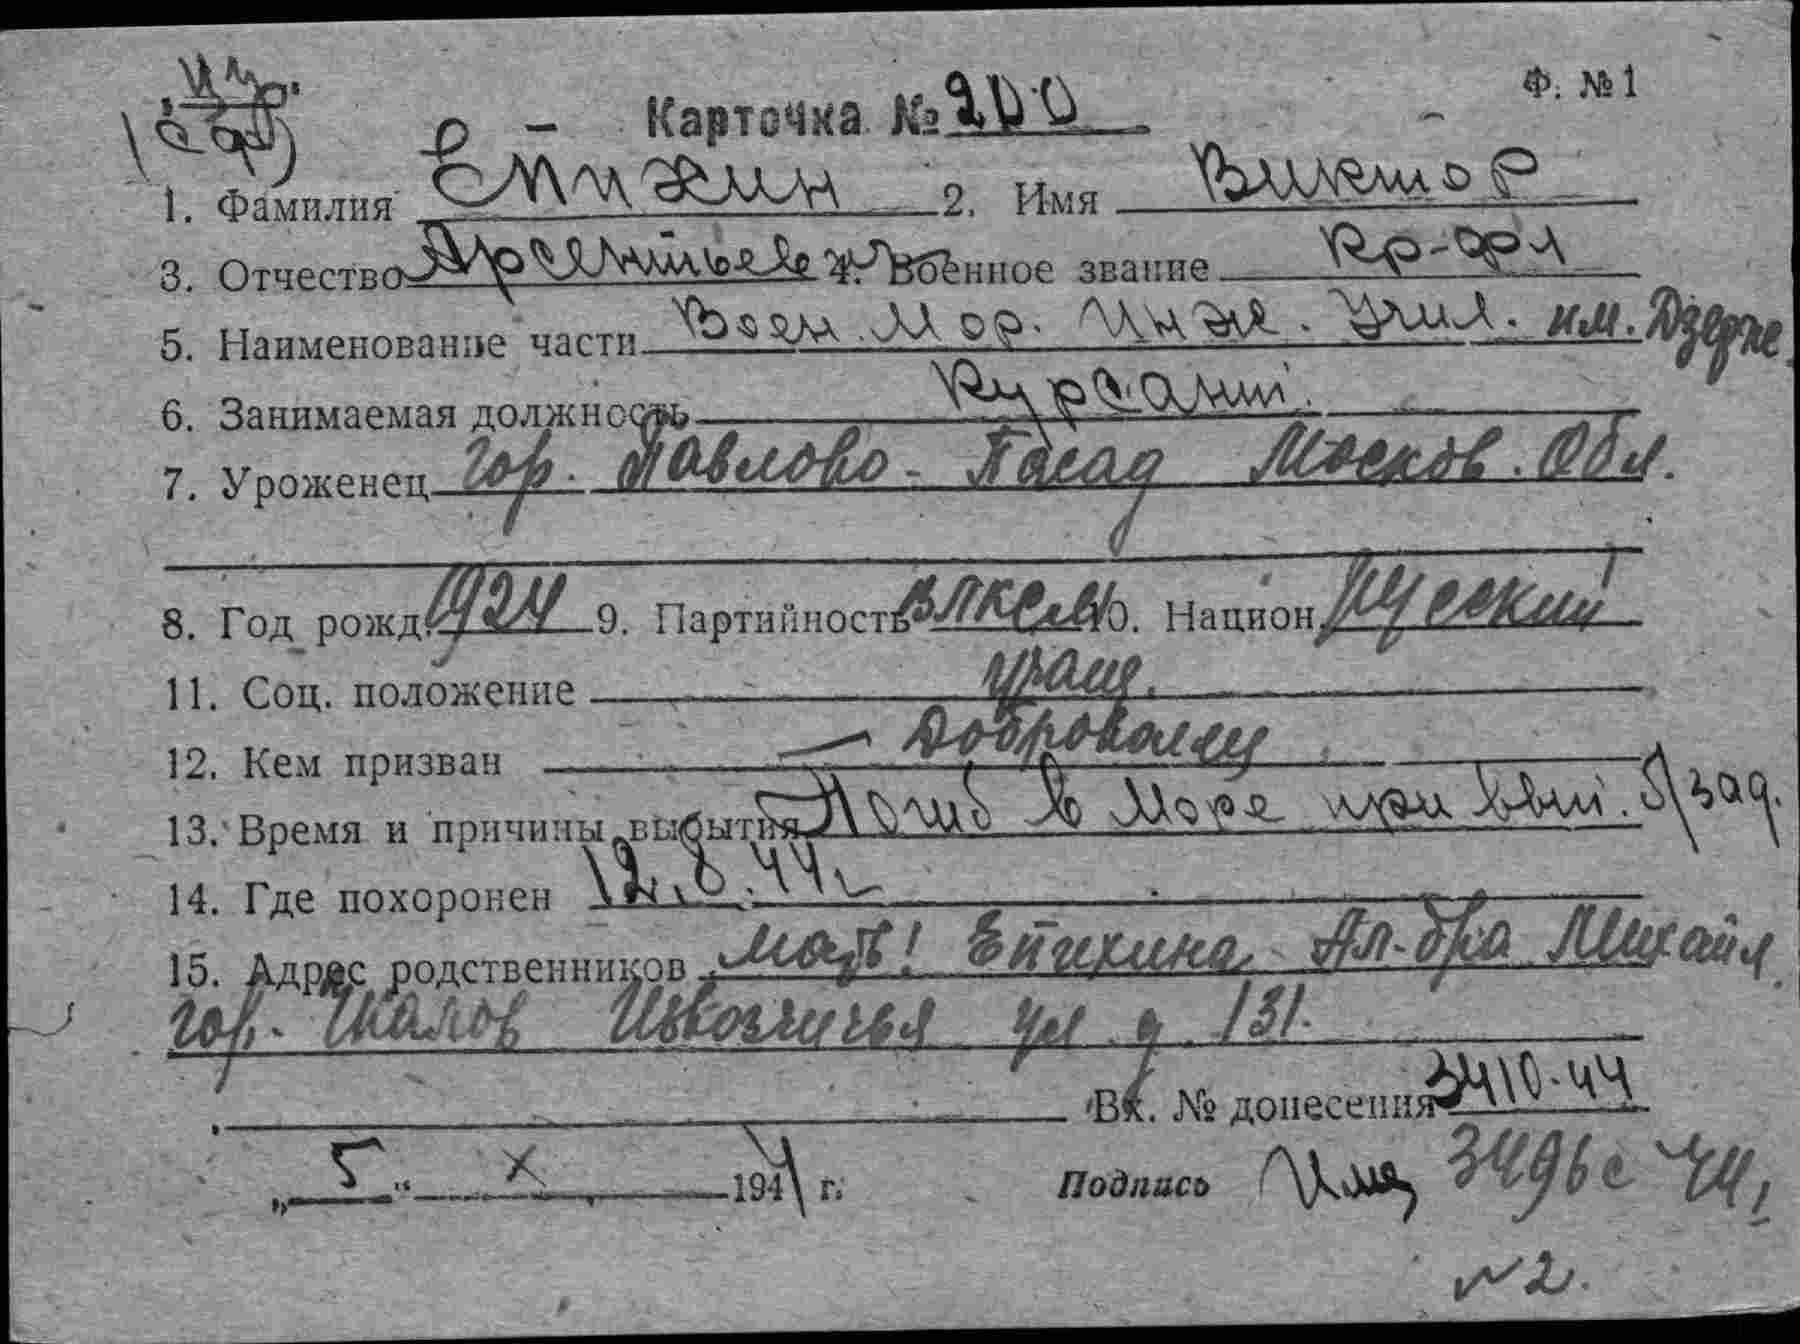 Ф. №1
Карточка № 200
1. Фамилия Епихин 2. Имя Виктор
3. Отчество Арсентьевич 4. Военное звание Кр-фл
5. Наименование части Воен. Мор. Инже. Учил. им. Дзерж.
6. Занимаемая должность Курсант.
7. Уроженец гор. Павлово-Пасад Москов. Обл.
8. Год рожд. 1924 9. Партийность ВЛКСМ 10. Национ. Русский
11. Соц. положение учащ.
12. Кем призван — Доброволец
13. Время и причины выбытия Погиб в Море при вып. б/зад.
14. Где похоронен 12.8.44г
15. Адрес родственников мать: Епихина Ал-дра Михайл.
гор. Чкалов Извозчичья ул д 131.
Вх. № донесения 3410-44
„5“ X 1944 г.
Подпись 3496с 44г
№2.